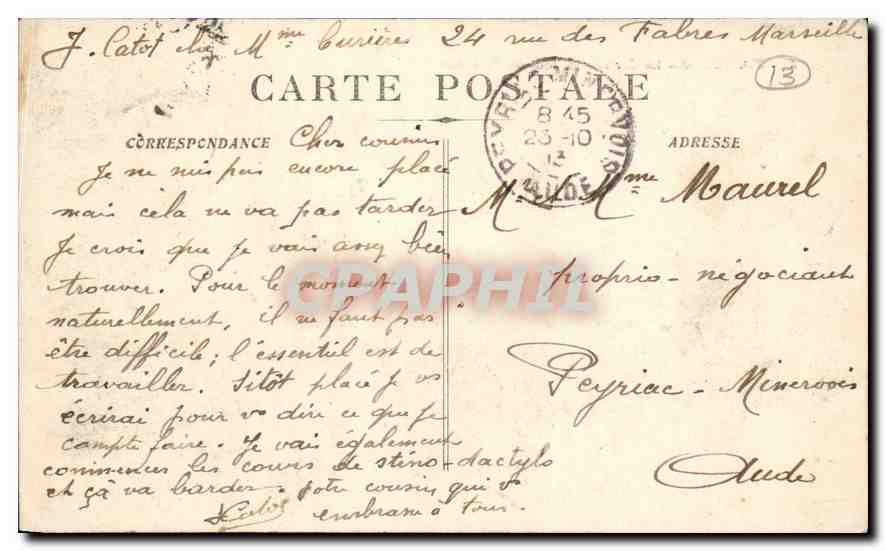 J. Catot chez Mme Curières 24 rue des Fabres Marseille
13
CARTE POSTALE
CORRESPONDANCE
ADRESSE
PEYRIAC-MINERVOIS
8 45
23-10
13
AUDE
Cher cousins
Je ne suis pas encore placé
mais cela ne va pas tarder
Je crois que je vais assez bien
trouver. Pour le moment
naturellement, il ne faut pas
être difficile; l'essentiel est de
travailler. Sitôt placé je vs
écrirai pour vs dire ce que je
compte faire. Je vais également
commencer les cours de sténo-dactylo
et çà va barder. Votre cousin qui vs
embrasse à tous.
JCatot
M. & Mme Maurel
proprio-négociant
Peyriac-Minervois
Aude
CPAPHIL